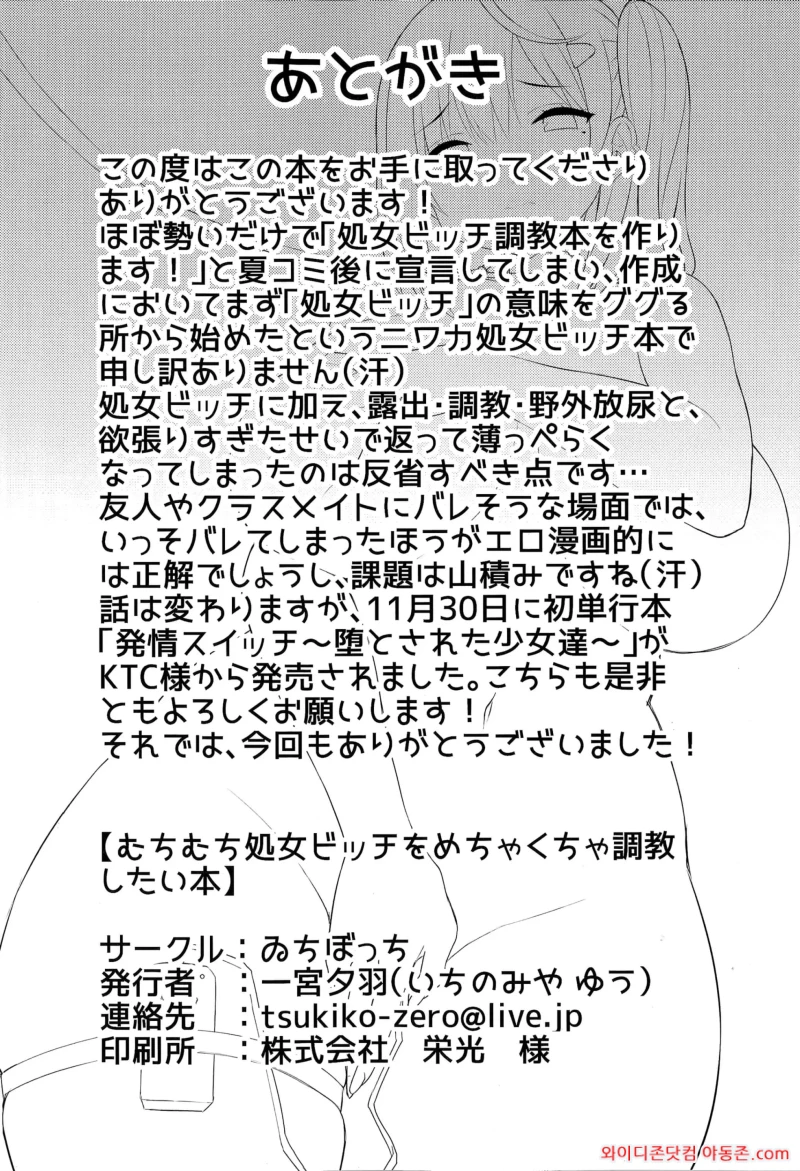 あとがき
この度はこの本をお手に取ってくださり
ありがとうございます！
ほぼ勢いだけで「処女ビッチ調教本を作り
ます！」と夏コミ後に宣言してしまい、作成
においてまず「処女ビッチ」の意味をググる
所から始めたというニワカ処女ビッチ本で
申し訳ありません(汗)
処女ビッチに加え、露出・調教・野外放尿と、
欲張りすぎたせいで返って薄っぺらく
なってしまったのは反省すべき点です…
友人やクラスメイトにバレそうな場面では、
いっそバレてしまったほうがエロ漫画的に
は正解でしょうし、課題は山積みですね(汗)
話は変わりますが、11月30日に初単行本
「発情スイッチ～堕とされた少女達～」が
KTC様から発売されました。こちらも是非
ともよろしくお願いします！
それでは、今回もありがとうございました！
【むちむち処女ビッチをめちゃくちゃ調教
したい本】
サークル：ゐちぼっち
発行者　：一宮夕羽(いちのみや ゆう)
連絡先　：tsukiko-zero@live.jp
印刷所　：株式会社　栄光　様
와이디존닷컴 야동존.com